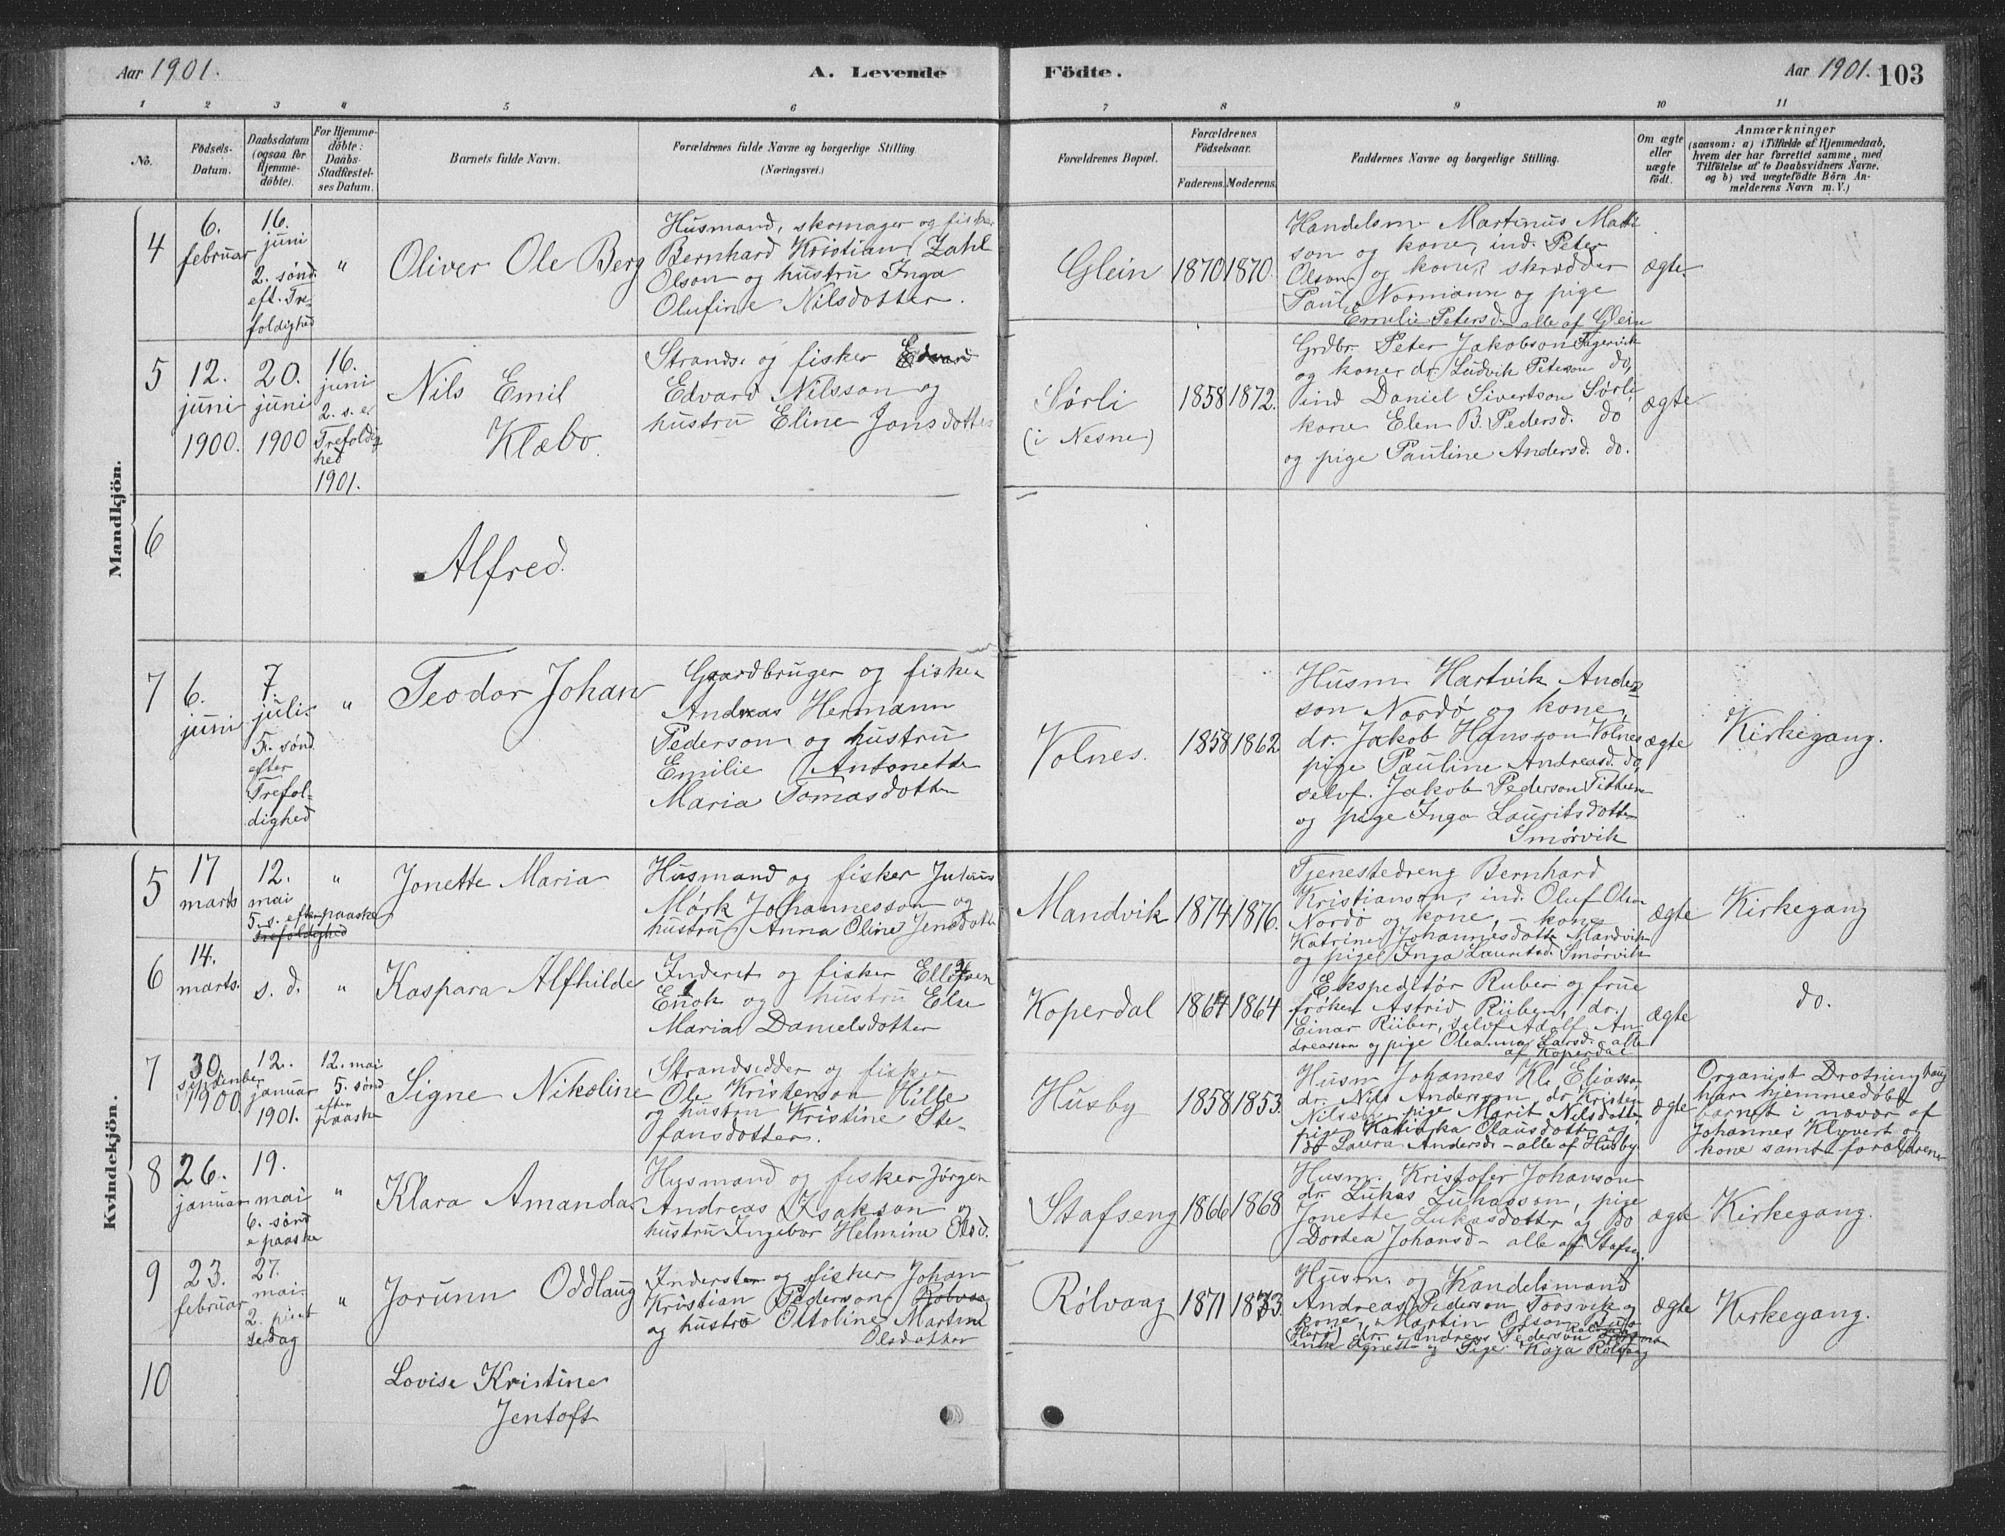 Aar 1901.
A. Levende
Födte.
Aar 1901.
103
1 2 3 4 5 6 7 8 9 10 11
No.
Födsels-
Datum.
Daabsdatum
(ogsaa for
Hjemme-
döbte).
For Hjemme-
döbte:
Daabs-
Stadfæstel-
ses Datum.
Barnets fulde Navn.
Forældrenes fulde Navne og borgerlige Stilling
(Næringsvei.)
Forældrenes Bopæl.
Forældrenes
Födselsaar.
Faderens. Moderens.
Faddernes Navne og borgerlige Stilling.
Om ægte
eller
uægte
födt.
Anmærkninger
(saasom: a) i Tilfælde af Hjemmedaab,
hvem der har forrettet samme, med
Tilföielse af to Daabsvidners Navne,
og b) ved uægtefödte Börn An-
melderens Navn m. V.)
Mandkjön.
4
6.
februar
16.
juni
2. sønd.
eft. Tre-
foldighed
"
Oliver Ole Berg
Husmand, skomager og fisker
Bernhard Kristian Zahl
Olson og hustru Inga
Olufine Nilsdotter.
Glein
1870
1870.
Handelsm. Martinus Matti
son og kone, ind. Peter
Olson og kone, skrædder
Paul Normann og pige
Emelie Petersd. – alle af Glein
ægte
5
12.
juni
1900.
20.
juni
1900
16.
juni
2. s. e.
Trefoldig
hed
1901.
Nils Emil
Klæbo.
Strands. og fisker Edvard
Edvard Nilsson og
hustru Eline Jonsdotter
Sørli
(i Nesne)
1858
1872.
Grdbr. Peter Jakobson Fagervik
og kone, dr. Ludvik Peterson do,
ind Daniel Sivertson Sørli,
kone Elen B. Pedersd. do
og pige Pauline Andersd. do.
ægte
6
Alfred.
7
6.
juni
7.
juli
5. sønd
efter
Trefol-
dighed
"
Teodor Johan
Gaardbruger og fisker
Andreas Hermann
Pederson og hustru
Emilie Antonette
Maria Tomasdotter
Volnes.
1858
1862
Husm. Hartvik Anders
son Nordø og kone,
dr. Jakob Hansson Volnes
pige Pauline Andreasd. do,
selvf. Jakob Pederson
og pige Inga Lauritsdotter
Smørvik
ægte
Kirkegang.
Kvindekjön.
5
17
marts
12.
mai
5. s. efter paaske
Trefoldighed
"
Jonette Maria
Husmand og fisker Julius
Mørk Johannesson og
hustru Anna Oline Jensdotter
Mandvik
1874
1876.
Tjenestedreng Bernhard
Kristianson, ind. Oluf Olsen
Nordø og kone, – kone
Katrine Johannesdotter Mandvik
og pige Inga Lauritsd. Smørvik
ægte
Kirkegang
6
14.
marts.
s. d.
"
Kaspara Alfhilde
Inderst og fisker Ellefsen
Enok og hustru Else
Maria Danielsdotter
Koperdal
1864
1864
Ekspeditør Ruber og frue
frøken Astrid Rüber, dr.
Einar Rüber, selvf Adolf An-
dreassen og pige Oleanna Larsd. – alle
af Koperdal
ægte
do.
7
30.
september
1900.
12.
januar
1901.
12. mai
5. sønd
efter
paaske
Signe Nikoline
Strandsidder og fisker
Ole Kristenson Hille
og hustru Kristine Ste-
fansdotter.
Husby
1858
1853.
Husm Johannes Kl. Eliasson
dr. Nils Anderson, dr Kristen
Nilsen, pige Marit Nilsdotter
pige Katinka Olausdotter og
do Laura Andersd. – alle af Husby.
ægte
Organist Drotninghaug
har hjemmedøbt
barnet i nøvær af
Johannes Klyvert og
kone samt forældrene
8
26.
januar
19.
mai
6. sønd
e paaske
"
Klara Amanda
Husmand og fisker Jørgen
Andreas Isakson og
hustru Ingebor Helmine Olsd.
Stafseng
1866
1868
Husm. Kristofer Johanson
dr. Lukas Lukasson, pige
Jonette Lukasdotter og do
Dortea Johansd – alle af Stafsg.
ægte
Kirkegang.
9
23.
februar
27.
mai
2. pint
sedag
"
Jorunn Oddlaug
Inderster og fisker Johan
Kristian Pederson Rølvaag
og hustru Ottoline Martine
Olsdotter
Rølvaag
1871
1873.
Husm. og Handelsmand
Andreas Pederson Toosvik og
kone, Martin Olson
(Herø) dr. Andreas Pederson
og Pige Kaja Rølvaag
ægte
Kirkegang.
10
Lovise Kristine
Jentoft